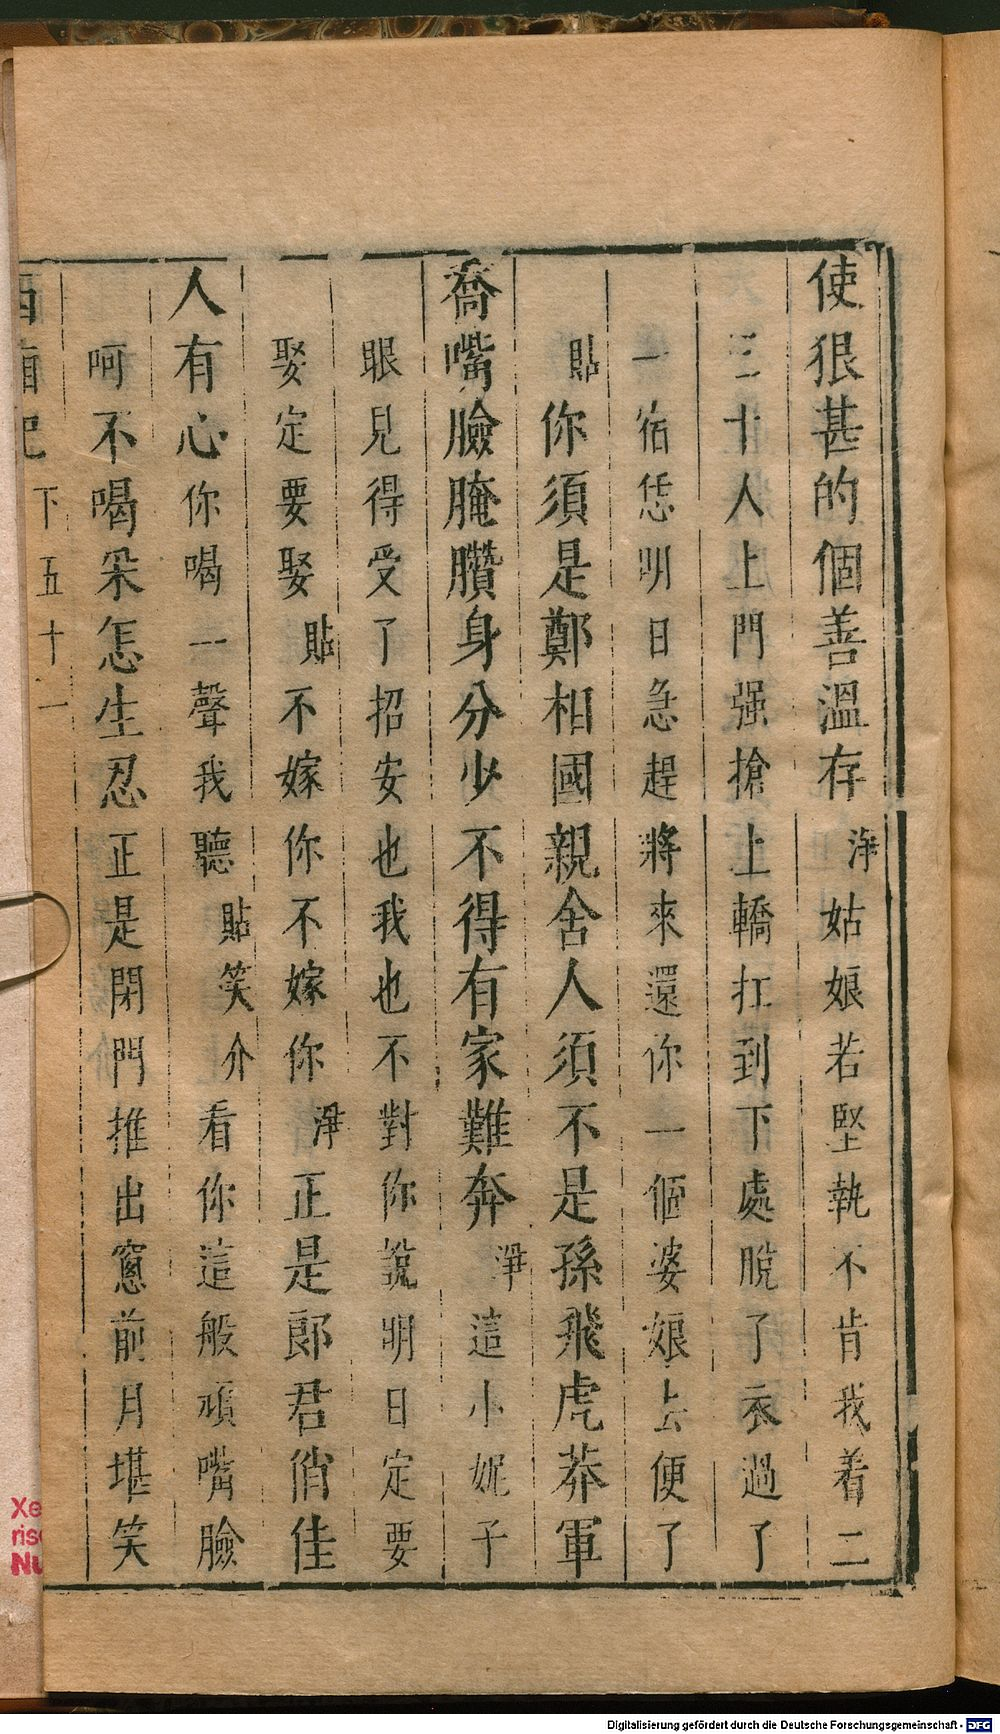 使狠甚的個善溫存淨姑娘若堅執不肯我着二
三十人上門强搶上轎扛到下處脫了衣過了
一宿恁明日急趕將來還你一個婆娘去便了
貼你須是鄭相國親舍人須不是孫飛虎莽軍
喬嘴臉腌臢身分少不得有家難奔淨這小妮子
眼見得受了招安也我也不對你說明日定要
娶定要娶貼不嫁你不嫁你淨正是郎君俏佳
人有心你喝一聲我聽貼笑介看你這般頑嘴臉
呵不喝采怎生忍正是閉門推出窻前月堪笑
西廂記 下 五十一
Digitalisierung gefördert durch die Deutsche Forschungsgemeinschaft - DFG